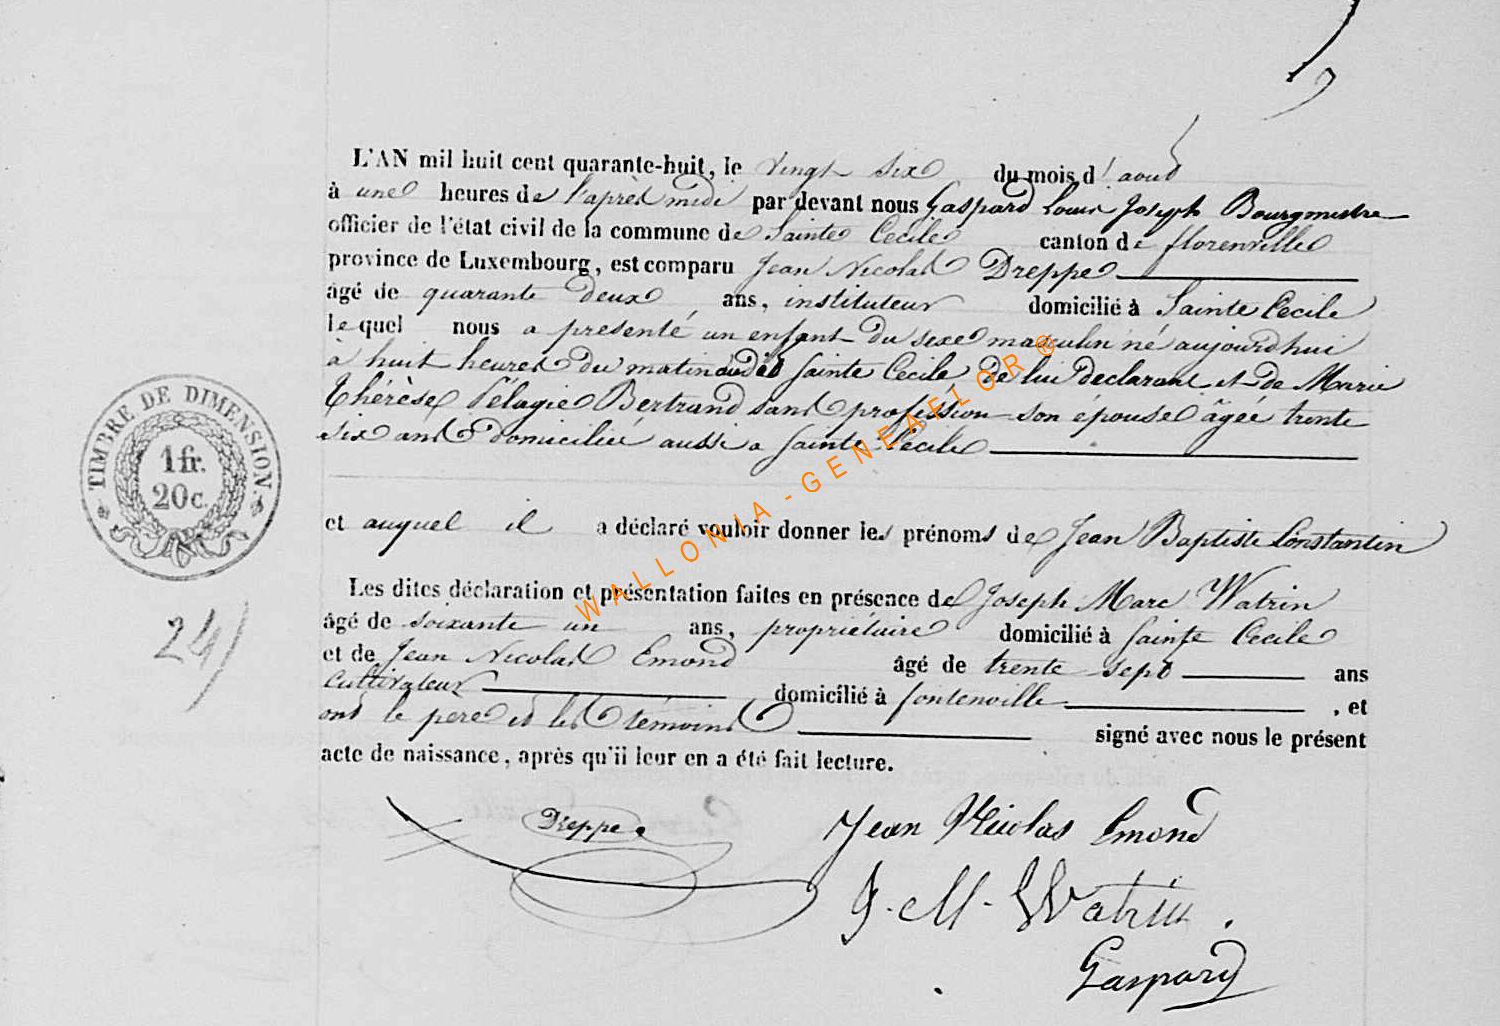 L'AN mil huit cent quarante-huit, le vingt six du mois d'aout
à une heures de l'après midi par devant nous Gaspard Louis Joseph Bourgmestre
officier de l'état civil de la commune de Sainte Cecile canton de florenville
province de Luxembourg, est comparu Jean Nicolas Dreppe
âgé de quarante deux ans, instituteur domicilié à Sainte Cecile
le quel nous a presenté un enfant du sexe masculin né aujourdhui
à huit heures du matin audit Sainte Cecile de lui declarant et de Marie
Thérèse Pélagie Bertrand sans profession son épouse âgée trente
six ans domiciliée aussi a Sainte Cécile
et auquel il a déclaré vouloir donner les prénoms de Jean Baptiste Constantin
Les dites déclaration et présentation faites en présence de Joseph Marc Watrin
âgé de soixante un ans, propriétaire domicilié à Sainte Cecile
et de Jean Nicolas Emond âgé de trente sept ans
cultivateur domicilié à fontenoille, et
ont le pere et les témoins signé avec nous le présent
acte de naissance, après qu'il leur en a été fait lecture.
Dreppe
Jean Nicolas Emond
J. M. Watrin.
Gaspard
TIMBRE DE DIMENSION.
1 fr.
20 c.
24)
WALLONIA-GENEAFLOR®